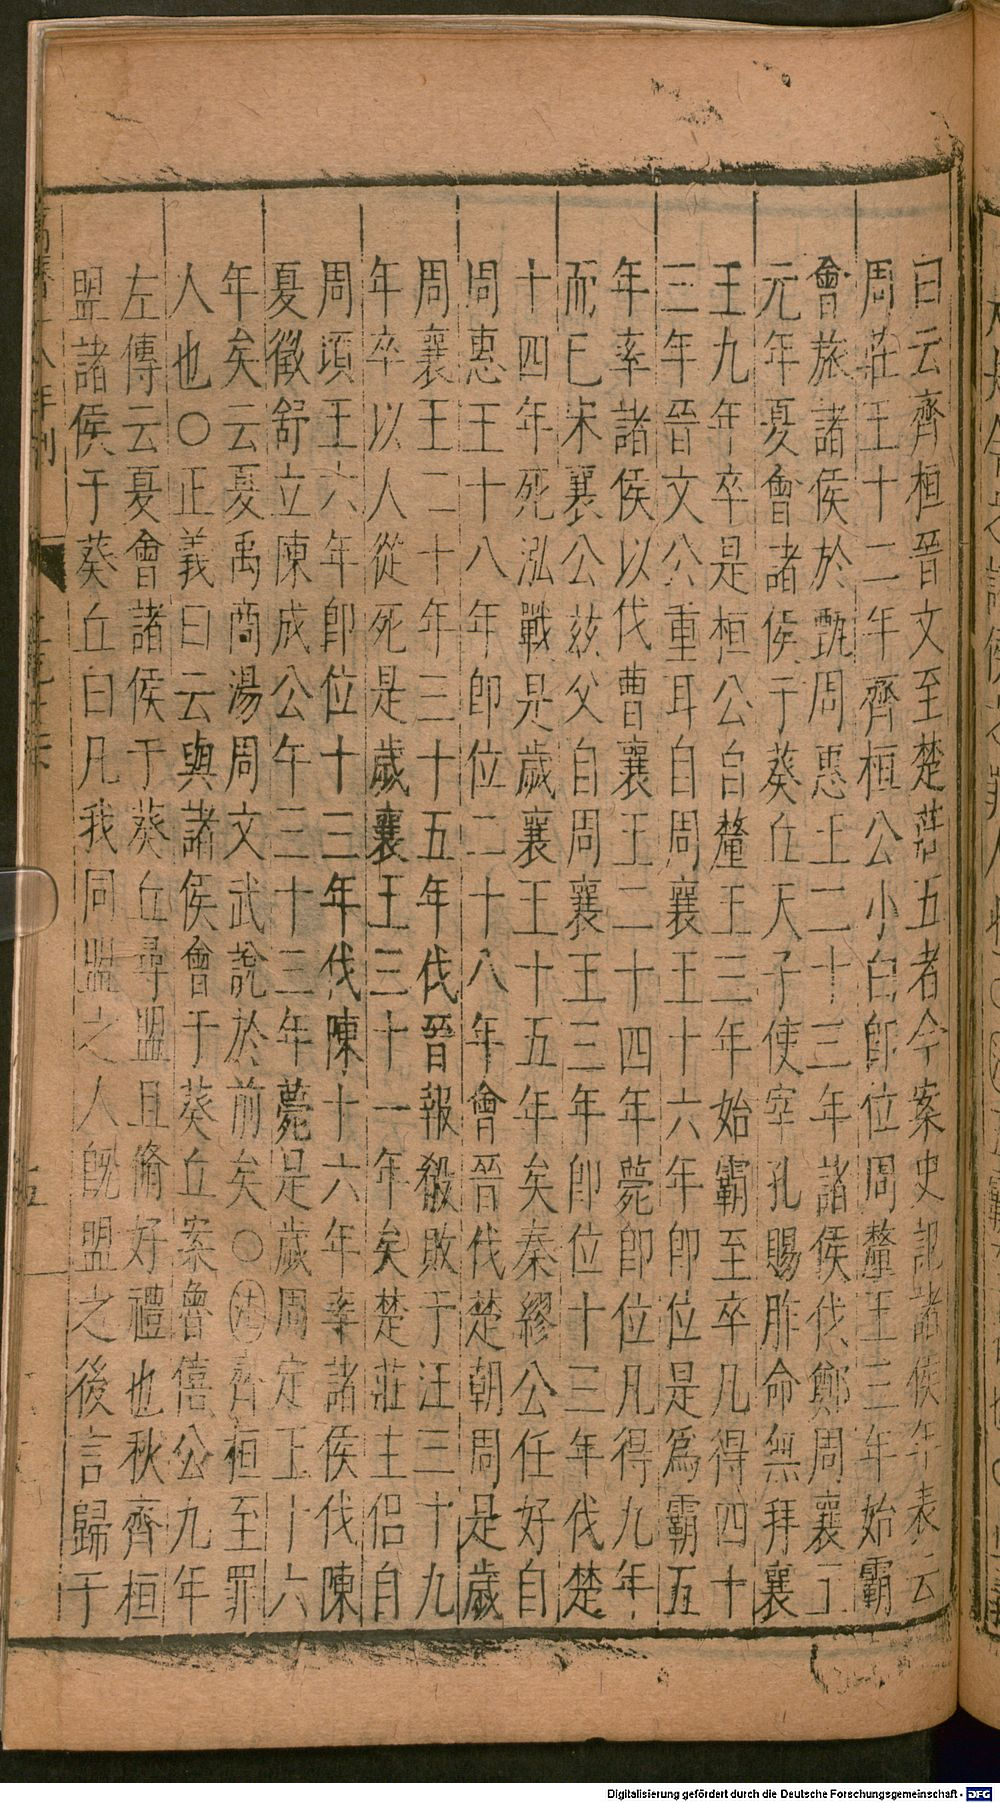 曰云齊桓晉文至楚莊五者今案史記諸侯年表云
周莊王十二年齊桓公小白卽位周釐王三年始霸
會旅諸侯於甄周惠王二十三年諸侯伐鄭周襄王
元年夏會諸侯于葵丘天子使宰孔賜胙命無拜襄
王九年卒是桓公自釐王三年始霸至卒凡得四十
三年晉文公重耳自周襄王十六年卽位是爲霸五
年率諸侯以伐曹襄王二十四年薨卽位凡得九年
而已宋襄公茲父自周襄王三年卽位十三年伐楚
十四年死泓戰是歲襄王十五年矣秦繆公任好自
周惠王十八年卽位二十八年會晉伐楚朝周是歲
周襄王二十年三十五年伐晉報殽敗于汪三十九
年卒以人從死是歲襄王三十一年矣楚莊王侶自
周頃王六年卽位十三年伐陳十六年率諸侯伐陳
夏徵舒立陳成公午二十三年薨是歲周定王十六
年矣云夏禹商湯周文武說於前矣○注齊桓至罪
人也○正義曰云與諸侯會于葵丘案魯僖公九年
左傳云夏會諸侯于葵丘尋盟且脩好禮也秋齊桓
盟諸侯于葵丘曰凡我同盟之人旣盟之後言歸于
Digitalisierung gefördert durch die Deutsche Forschungsgemeinschaft - DFG